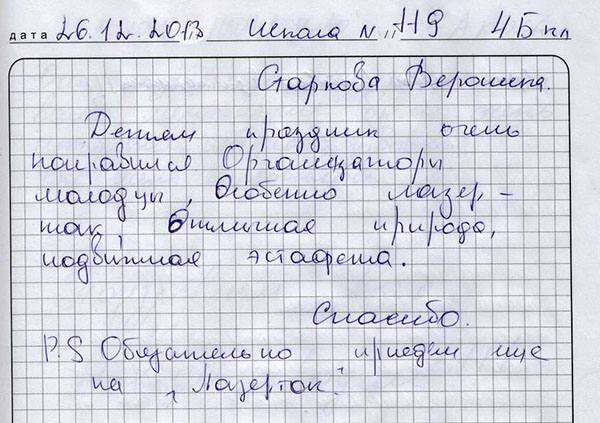 дата 26.12.2013 Школа N "119 4Б кл
Старкова Вероника.
Детям праздник очень
понравился Организаторы
молодцы, Особенно лазер-
так, Отличная природа,
подвижная эстафета.
Спасибо.
P.S Обязательно приедем еще
на "Лазерток".